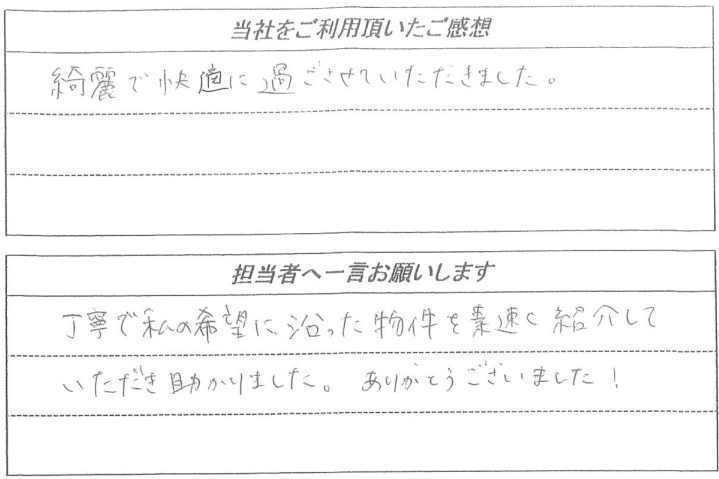 当社をご利用頂いたご感想
綺麗で快適に過ごさせていただきました。
担当者へ一言お願いします
丁寧で私の希望に沿った物件を素速く紹介して
いただき助かりました。ありがとうございました!